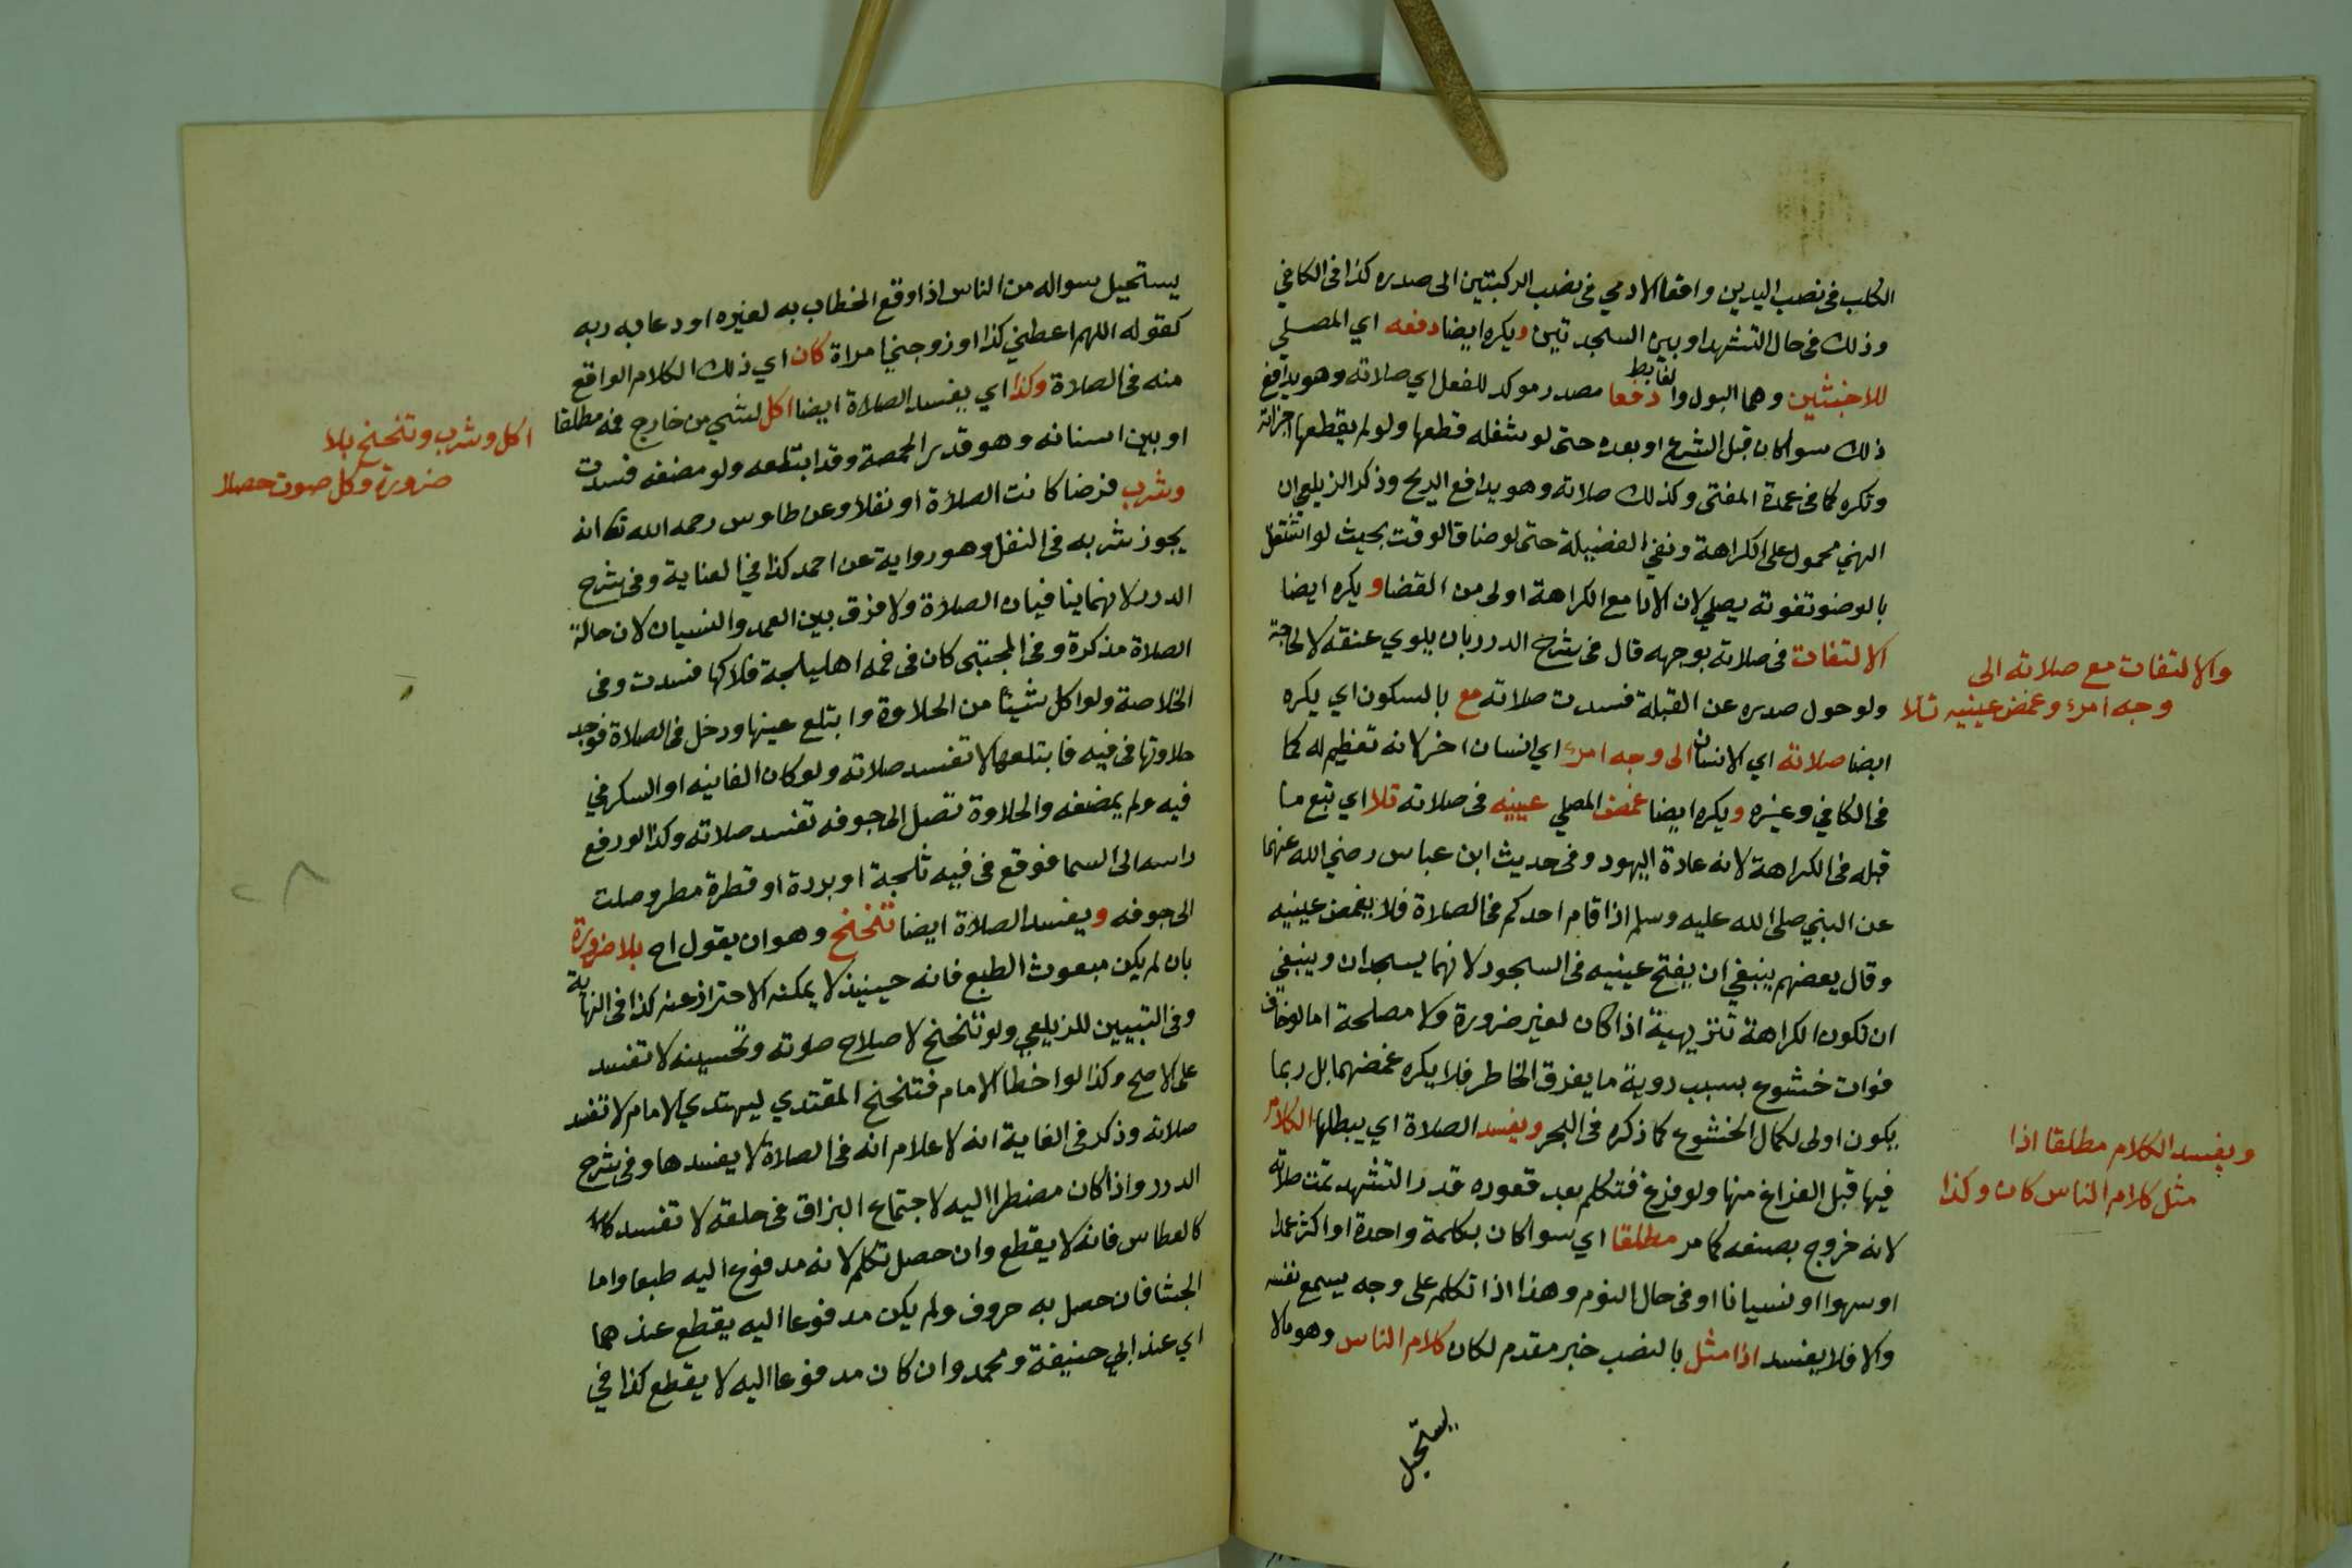 الكلب في نصب اليدين واقعا الادمي في نصب الركبتين الى صدره كذا في الكافي
وذلك في حال التشهد او بين السجدتين ويكره ايضا دفعه اي المصلي
للاخبثين وهما البول والغايط دفعا مصدر موكد للفعل اي صلاته وهو يدافع
ذلك سوا كان قبل الشرع او بعده حتى لو شغله قطعها ولو لم يقطعها اجزاته
وتكره كما في عمدة المفتى وكذلك صلاته وهو يدافع الريح وذكر الزيلعي ان
النهي محمول على الكراهة ونفي الفضيلة حتى لو ضاق الوقت بحيث لو اشتغل
بالوضو تفوته يصلي لان الادا مع الكراهة اولى من القضا ويكره ايضا
الالتفات في صلاته بوجهه قال في شرح الدرر بان يلوي عنقه لا لحاجة
ولو حول صدره عن القبلة فسدت صلاته مع بالسكون اي يكره
ايضا صلاته اي الانسان الى وجه امرء اي انسان اخر لانه تعظيم له كما
في الكافي وغيره ويكره ايضا غمض المصلي عينيه في صلاته تلا اي تبع ما
قبله في الكراهة لانه عادة اليهود وفي حديث ابن عباس رضي الله عنهما
عن النبي صلى الله عليه وسلم اذا قام احدكم في الصلاة فلا يغمض عينيه
وقال بعضهم ينبغي ان يفتح عينيه في السجود لانهما يسجدان وينبغي
ان تكون الكراهة تنزيهية اذا كان لغير ضرورة ولا مصلحة اما لو خاف
فوات خشوع بسبب روية ما يفرق الخاطر فلا يكره غمضهما بل ربما
يكون اولى لكمال الخشوع كما ذكره في البحر ويفسد الصلاة اي يبطلها الكلام
فيها قبل الفراغ منها ولو فرغ فتكلم بعد قعوده قدر التشهد تمت صلاته
لانه خروج بصنعه كما مر مطلقا اي سوا كان بكلمة واحدة او اكثر عمدا
او سهوا او نسيانا او في حال النوم وهذا اذا تكلم على وجه يسمع نفسه
والا فلا يفسد اذا مثل بالنصب خبر مقدم لكان كلام الناس وهو مالا
يستحيل
والالتفات مع صلاته الى
وجه امرء وغمض عينيه تلا
ويفسد الكلام مطلقا اذا
مثل كلام الناس كان وكذا
يستحيل سواله من الناس اذا وقع الخطاب به لغيره او دعا به ربه
كقوله اللهم اعطني كذا او زوجني امراة كان اي ذلك الكلام الواقع
منه في الصلاة وكذا اي يفسد الصلاة ايضا اكل لشي من خارج فمه مطلقا
او بين اسنانه وهو قدر الحمصة وقد ابتلعه ولو مضغه فسدت
وشرب فرضا كانت الصلاة او نفلا وعن طاوس رحمه الله تعا انه
يجوز شربه في النفل وهو رواية عن احمد كذا في العناية وفي شرح
الدرر لانهما ينافيان الصلاة ولا فرق بين العمد والنسيان لان حالة
الصلاة مذكرة وفي المجتبى كان في فمه اهليلجة فلاكها فسدت وفي
الخلاصة ولو اكل شيئا من الحلاوة وابتلع عينها ودخل في الصلاة فوجد
حلاوتها في فيه فابتلعها لا تفسد صلاته ولو كان الفانيد او السكر في
فيه ولم يمضغه والحلاوة تصل الى جوفه تفسد صلاته وكذا لو رفع
راسه الى السما فوقع في فيه ثلجة او بردة او قطرة مطر وصلت
الى جوفه ويفسد الصلاة ايضا تنحنح وهو ان يقول اح بلا ضرورة
بان لم يكن مبعوث الطبع فانه حينيذ لا يمكنه الاحتراز عنه كذا في النهاية
وفي التبيين للزيلعي ولو تنحنح لاصلاح صوته وتحسينه لا تفسد
على الاصح وكذا لو اخطا الامام فتنحنح المقتدي ليهتدي الامام لا تفسد
صلاته وذكر في الغاية انه لاعلام انه في الصلاة لا يفسدها وفي شرح
الدرر واذا كان مضطرا اليه لاجتماع البزاق في حلقه لا تفسد
كالعطاس فانه لا يقطع وان حصل تكلم لانه مدفوع اليه طبعا واما
الجشا فان حصل به حروف ولم يكن مدفوعا اليه يقطع عندهما
اي عند ابي حنيفة ومحمد وان كان مدفوعا اليه لا يقطع كذا في
اكل وشرب وتنحنح بلا
ضرورة وكل صوت حصلا